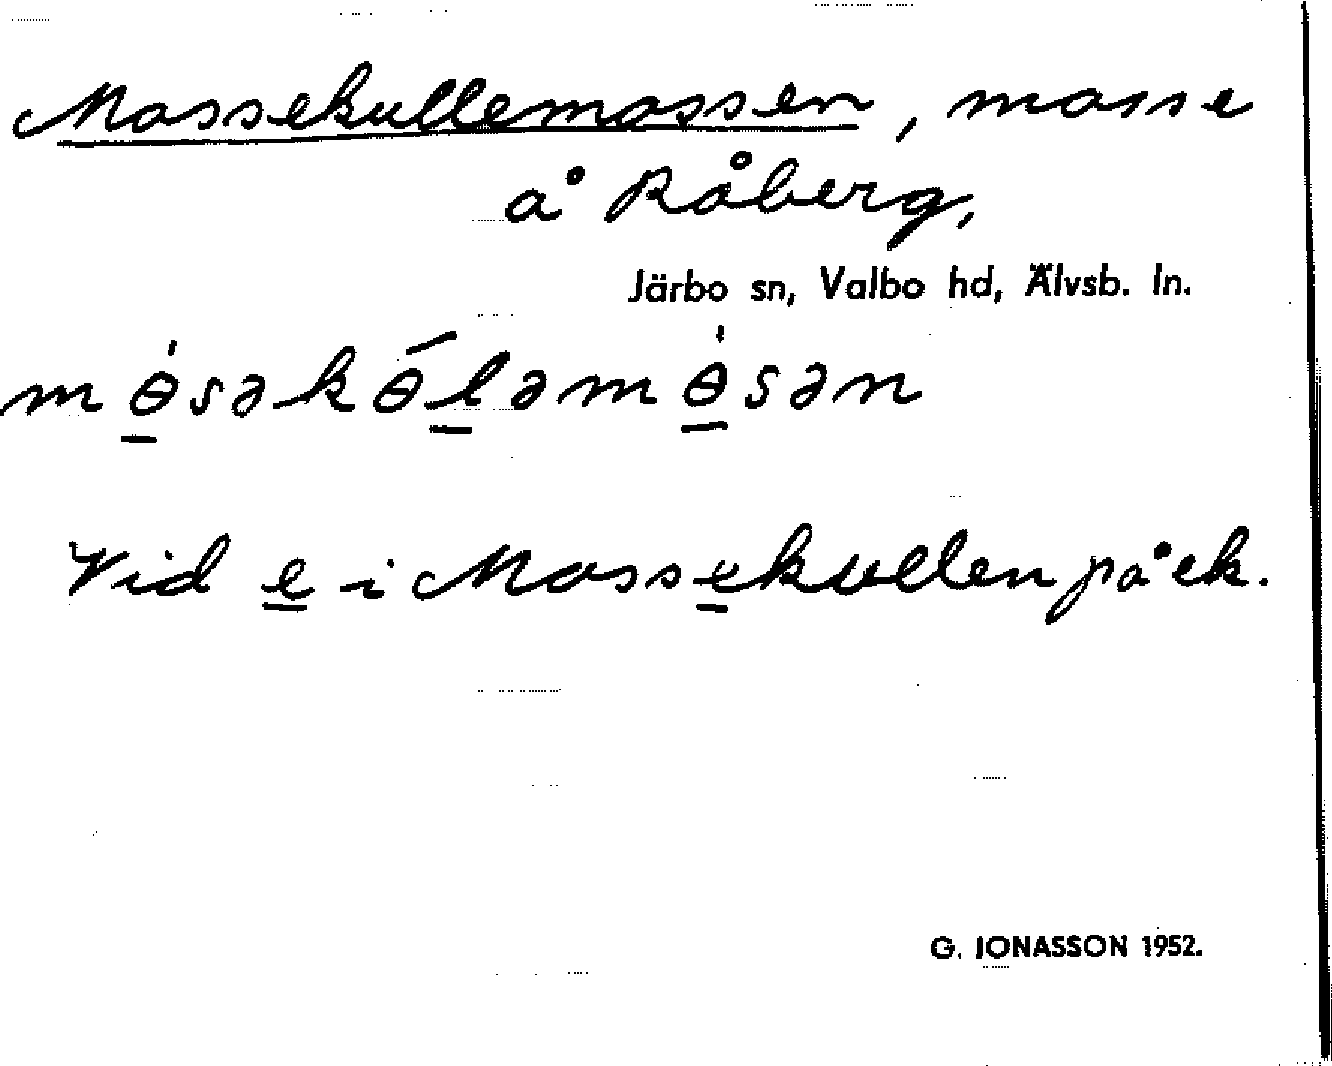 Mossekullemossen, mosse
å Råberg,
Järbo sn, Valbo hd, Älvsb. ln.
mɵ̀səkɵ́ləmɵ̀sən
Vid e i Mossekullen på ek.
G. JONASSON 1952.